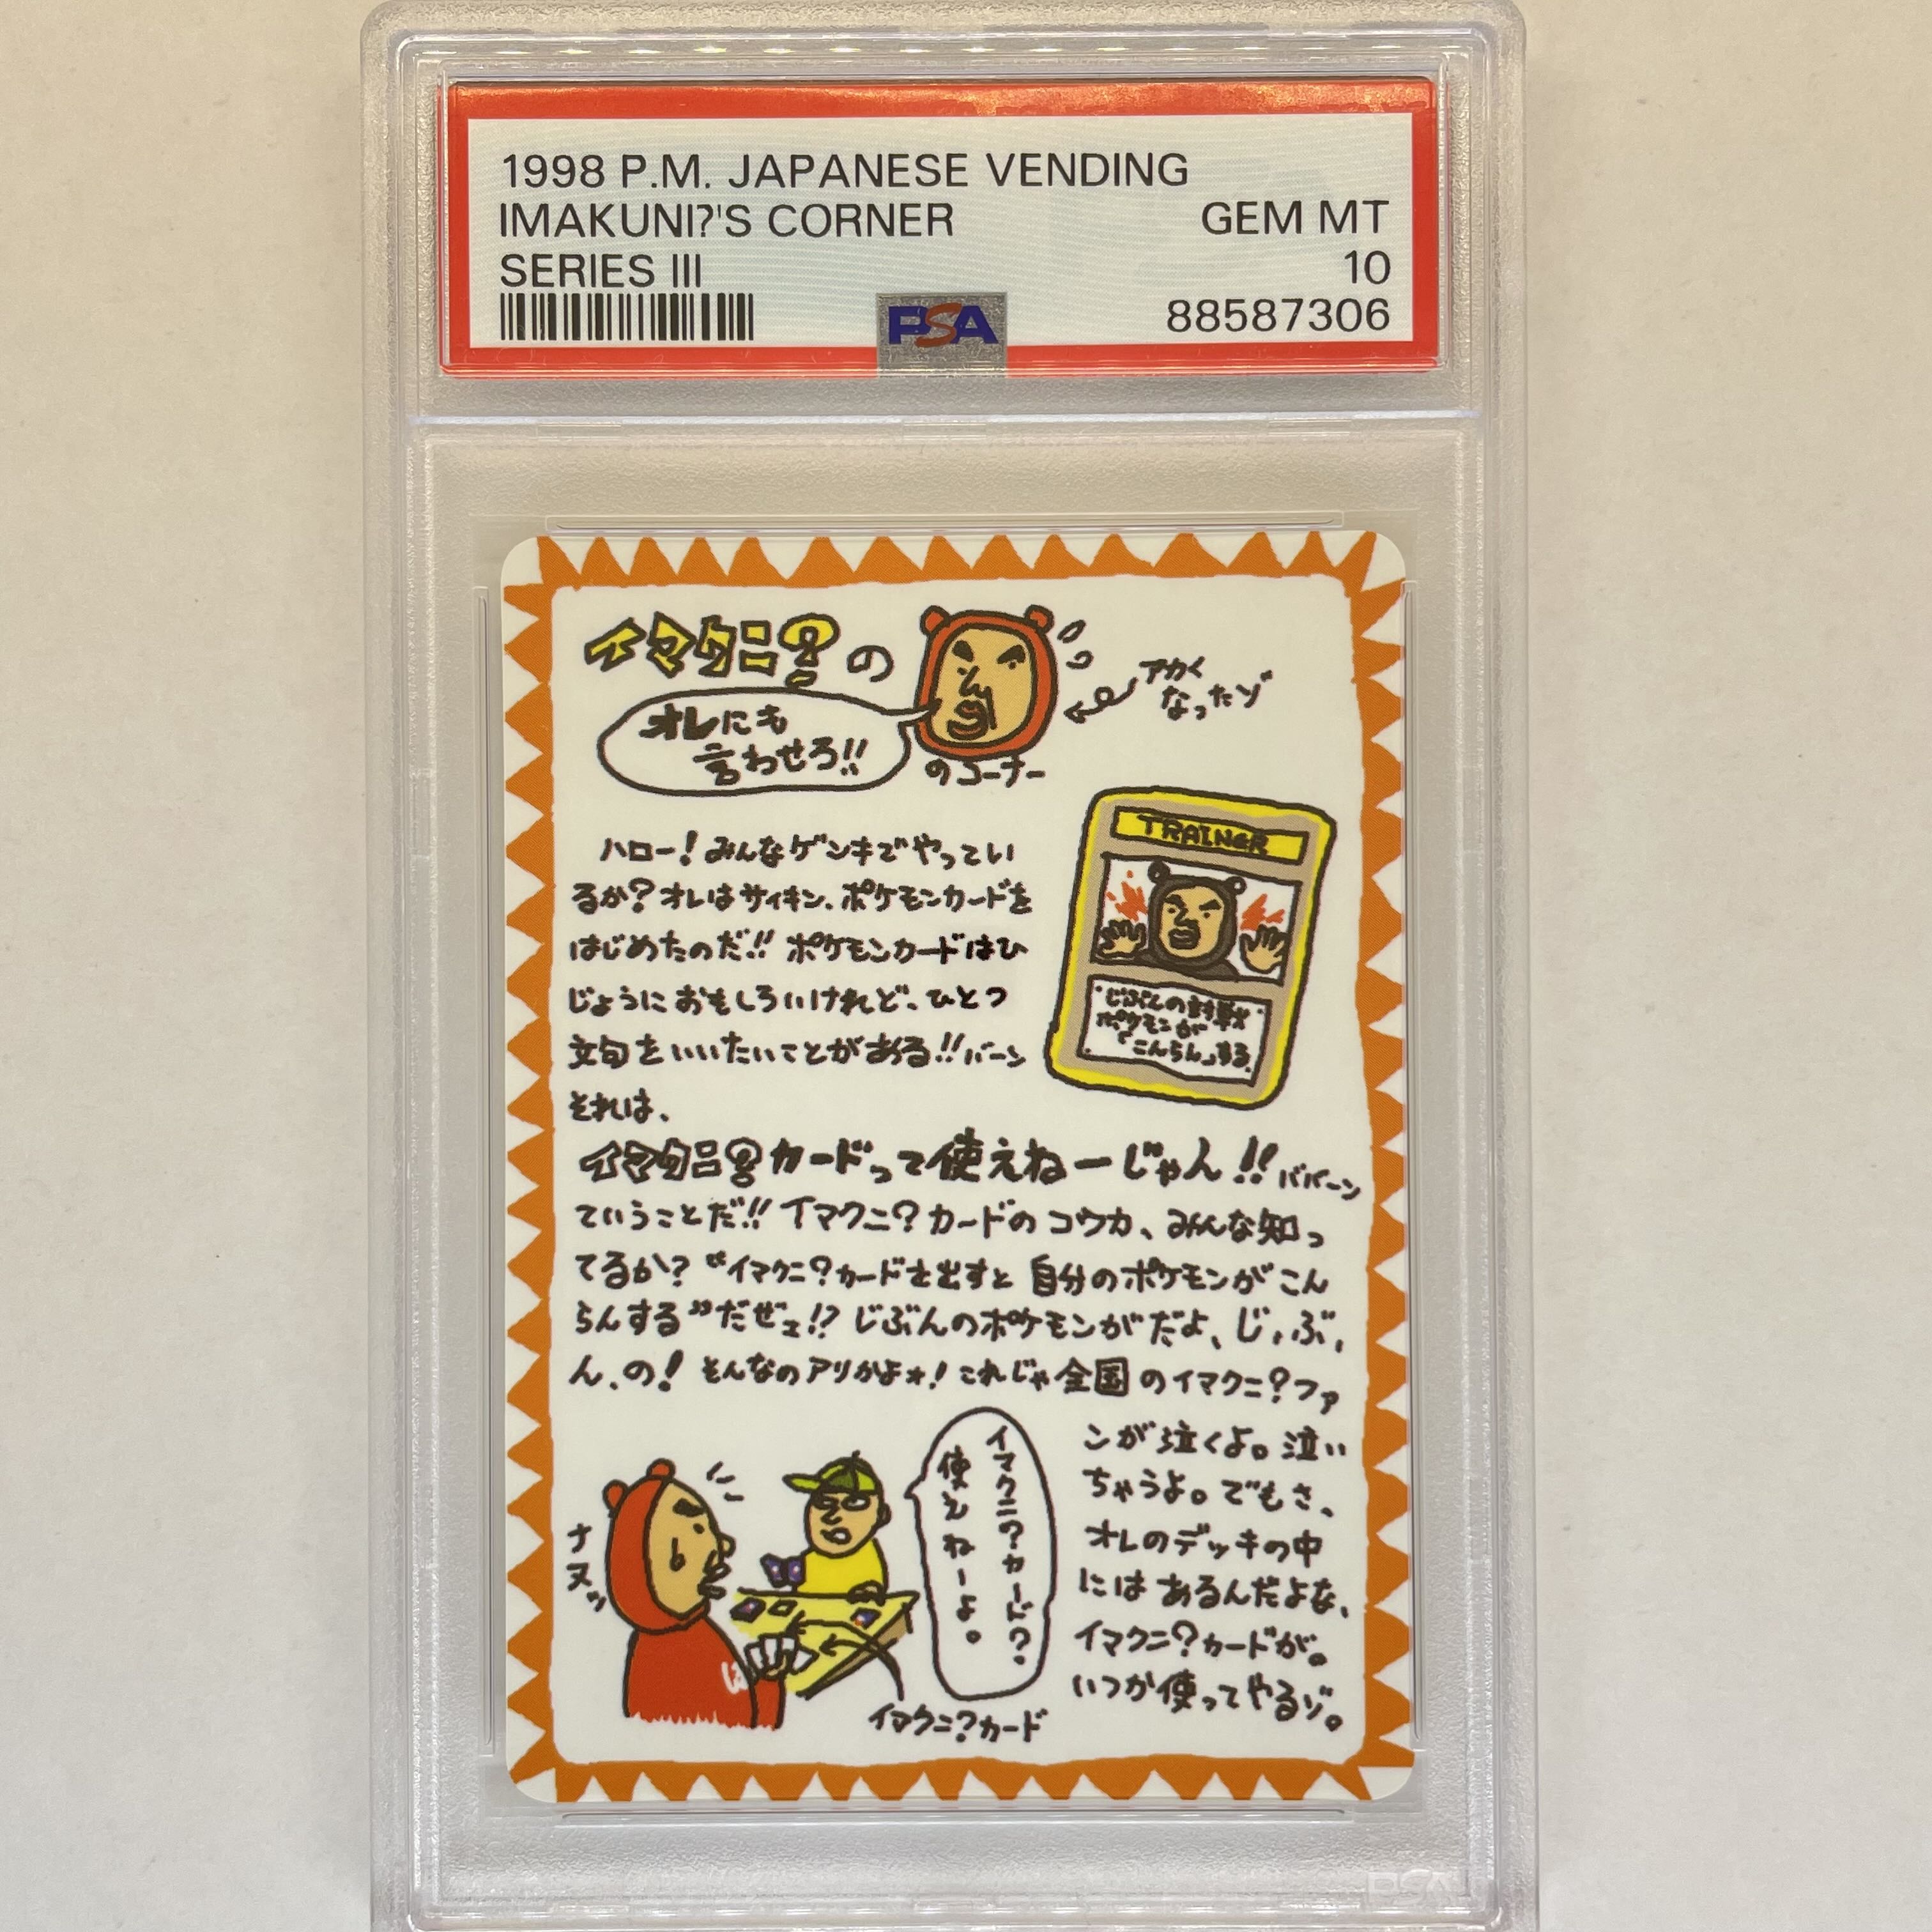 1998 P.M. JAPANESE VENDING
IMAKUNI?'S CORNER GEM MT
SERIES III 10
PSA 88587306
イマクニ?の
オレにも
言わせろ!!
のコーナー
アカく
なったゾ
ハロー!みんなゲンキでやってい
るか?オレはサイキン、ポケモンカードを
はじめたのだ!!ポケモンカードはひ
じょうにおもしろいけれど、ひとつ
文句をいいたいことがある!!バーン
それは、
TRAINER
・じぶんの対戦
ポケモンが
「こんらん」する。
イマクニ?カードって使えねーじゃん!!ババーン
ていうことだ!!イマクニ?カードのコウカ、みんな知っ
てるか?“イマクニ?カードを出すと自分のポケモンがこん
らんする”だぜェ!?じぶんのポケモンがだよ、じ、ぶ、
ん、の!そんなのアリかよォ!これじゃ全国のイマクニ?ファ
ンが泣くよ。泣い
ちゃうよ。でもさ、
オレのデッキの中
にはあるんだよな、
イマクニ?カードが。
いつか使ってやるゾ。
イマクニ?カード?
使えねーよ。
ナヌッ
イマクニ?カード
PSA